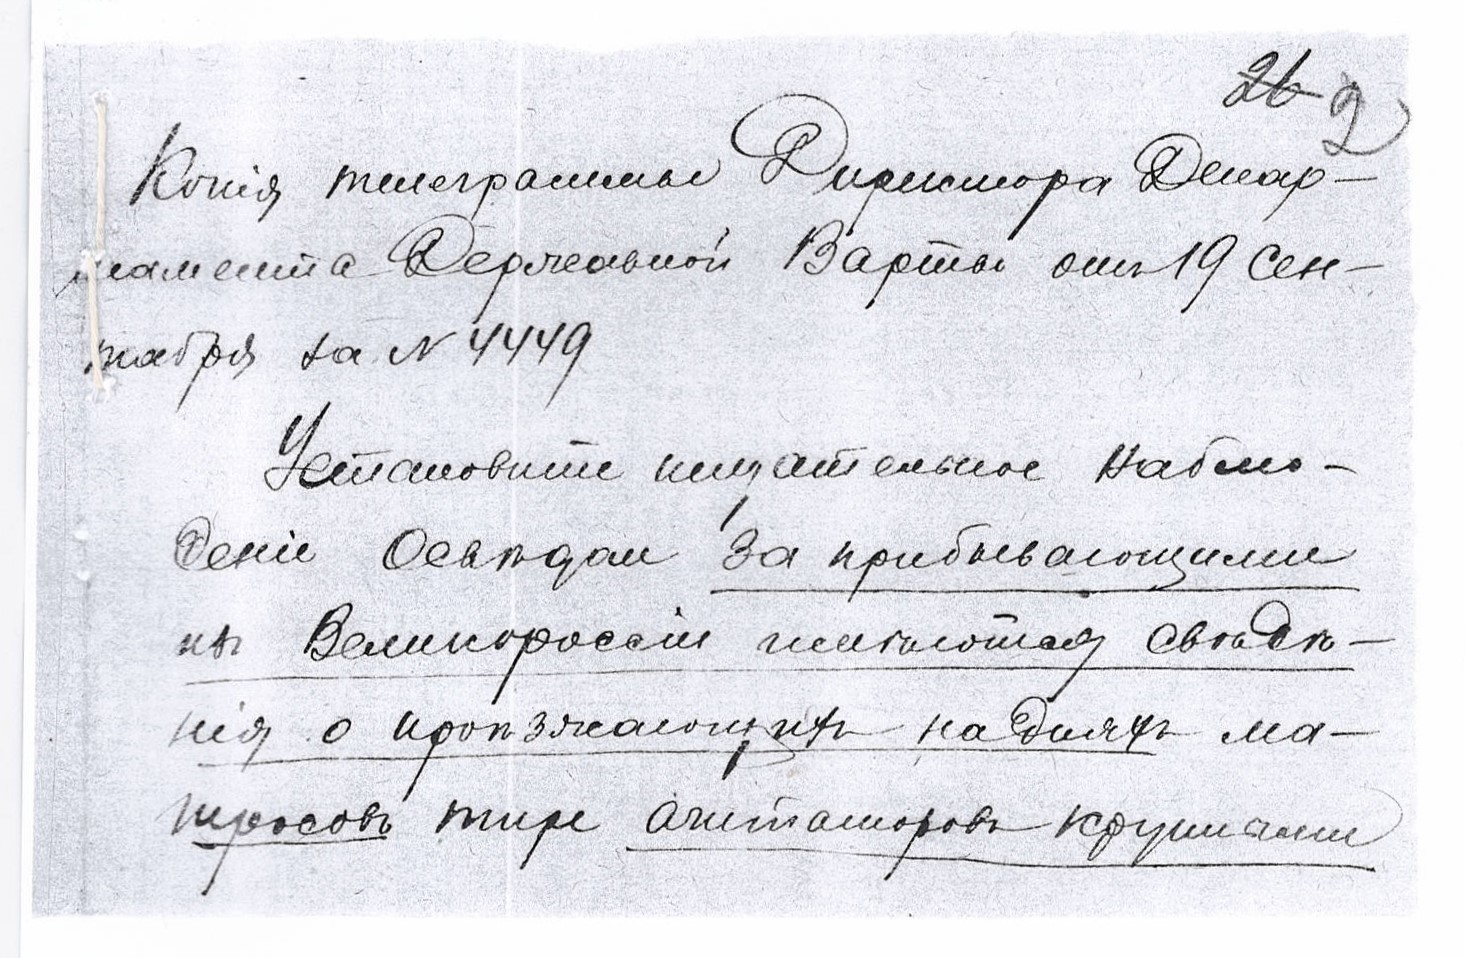 26 2
Копія телеграммы Директора Депар-
тамента Державной Варты отъ 19 Сен-
тября за N 4449
Установите тщательное наблю-
деніе Освѣдом за прибывающими
изъ Великороссіи имѣются свѣдѣ-
нія о проѣзжающихъ на дняхъ ма-
тросовъ тире агитаторовъ крупными